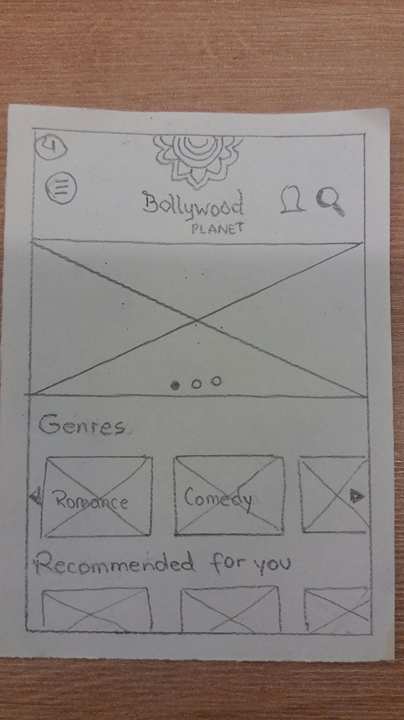 4
Bollywood
PLANET
Genres
Romance
Comedy
Recommended for you